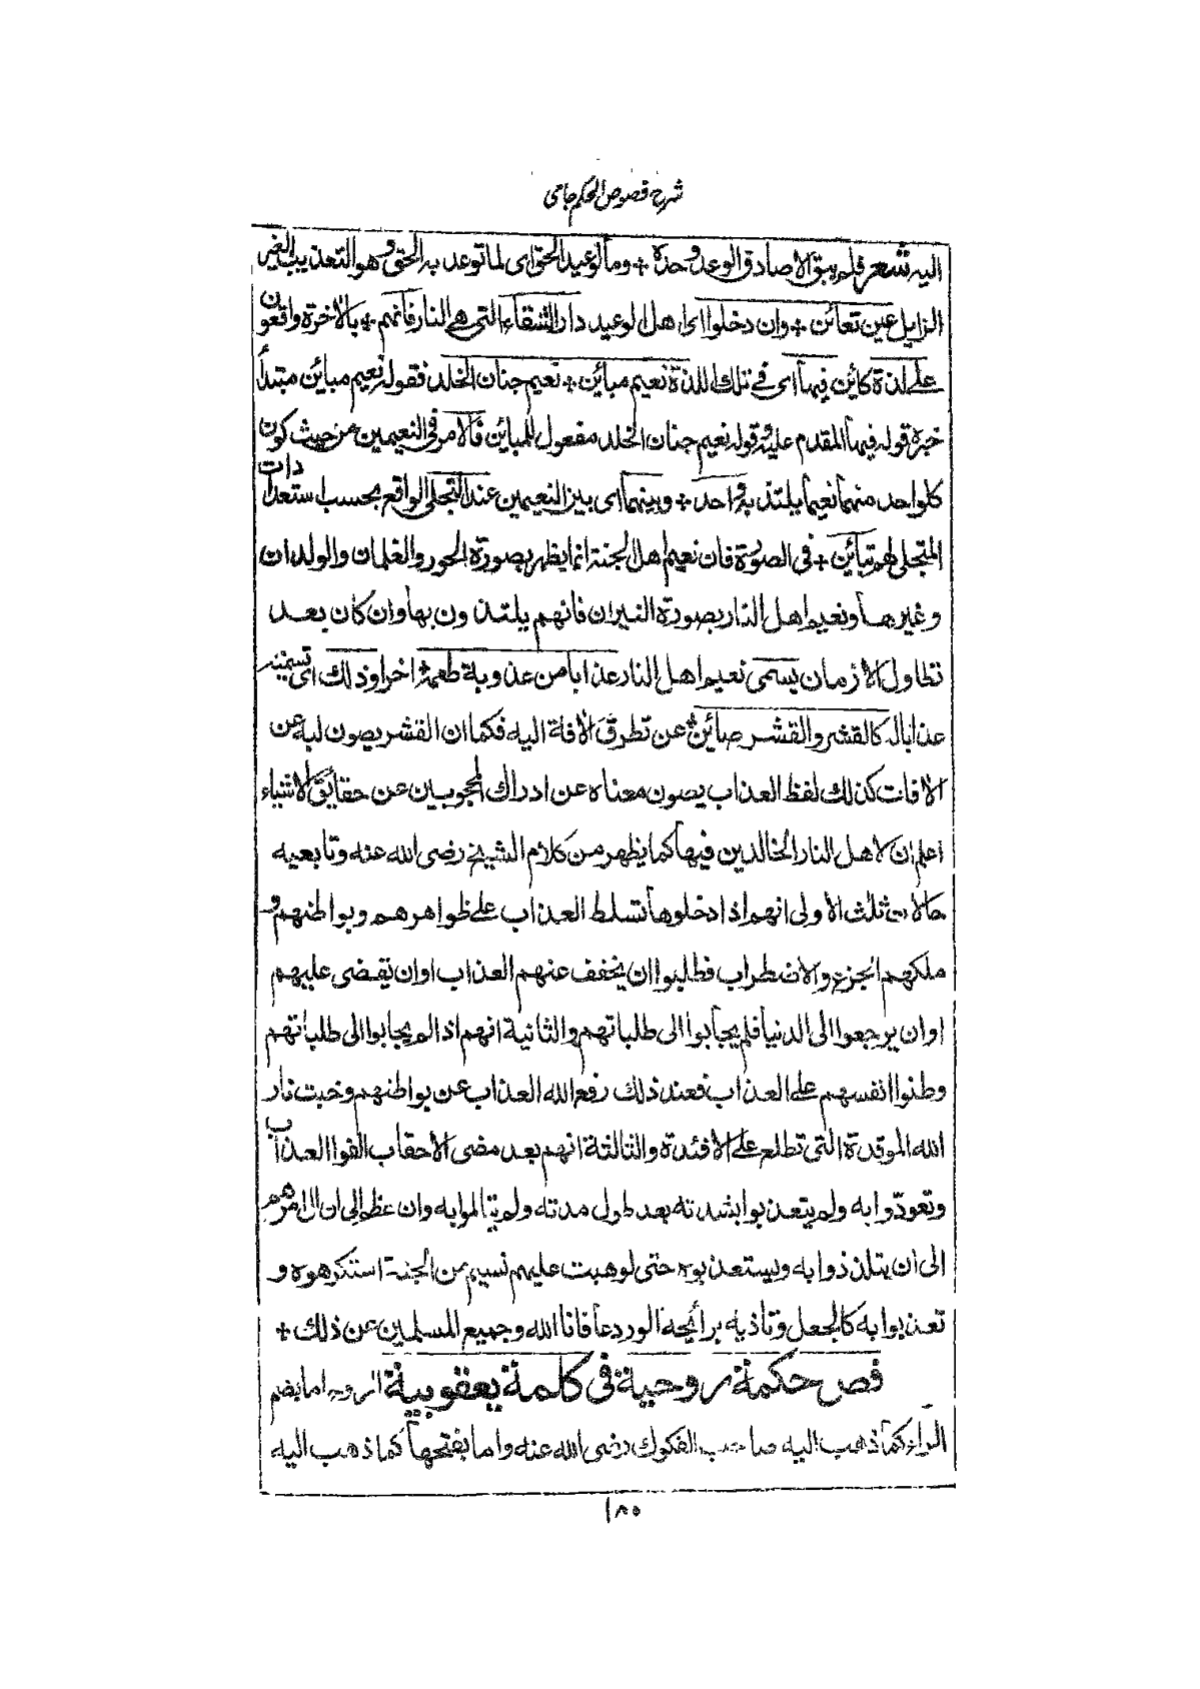 شرح فصوص الحكم جامى
اليه شعر فلم يبق الا صادق الوعد وحده + وما لوعيد الحق اى لما توعد به الحق وهو التعذيب الغير
الزايل عين تعائن + وان دخلوا اى اهل الوعيد دار الشقاء التى هى النار فانهم + بالاخرة واقعون
على لذة كائن فيها اى فى تلك اللذة نعيم مبائن + نعيم جنان الخلد فقوله نعيم مبائن مبتدأ
خبره قوله فيها المقدم عليه وقوله نعيم جنان الخلد مفعول للمبائن فالامر فى النعيمين من حيث كون
كلواحد منهما نعيما يلتذ به واحد + وبينهما اى بين النعيمين عند التجلى الواقع بحسب استعدادات
المتجلى لهم تبائن + فى الصورة فان نعيم اهل الجنة انما يظهر بصورة الحور والغلمان والولدان
وغيرها ونعيم اهل النار بصورة النيران فانهم يلتذون بها وان كان بعد
تطاول الازمان يسمى نعيم اهل النار عذابا من عذوبة طعمه اخرا وذلك اى تسميته
عذابا له كالقشر والقشر صائن عن تطرق الافة اليه فكما ان القشر يصون لبه عن
الافات كذلك لفظ العذاب يصون معناه عن ادراك المحجوبين عن حقائق الاشياء
اعلم ان لاهل النار الخالدين فيها كما يظهر من كلام الشيخ رضى الله عنه وتابعيه
حالات ثلث الاولى انهم اذا دخلوها تسلط العذاب على ظواهرهم وبواطنهم و
ملكهم الجزع والاضطراب فطلبوا ان يخفف عنهم العذاب او ان يقضى عليهم
او ان يرجعوا الى الدنيا فلم يجابوا الى طلباتهم والثانية انهم اذا لم يجابوا الى طلباتهم
وطنوا انفسهم على العذاب فعند ذلك رفع الله العذاب عن بواطنهم وخبت نار
الله الموقدة التى تطلع على الافئدة والثالثة انهم بعد مضى الاحقاب الفوا العذاب
وتعودوا به ولم يتعذبوا بشدته بعد طول مدته ولم يتالموا به وان عظم الى ان ال امرهم
الى ان يتلذذوا به ويستعذبوه حتى لو هبت عليهم نسيم من الجنة استكرهوه و
تعذبوا به كالجعل وتاذيه برائحة الورد عافانا الله وجميع المسلمين عن ذلك +
فص حكمة روحية فى كلمة يعقوبية الروح اما بضم
الراء كما ذهب اليه صاحب الفكوك رضى الله عنه واما بفتحها كما ذهب اليه
١٨٥